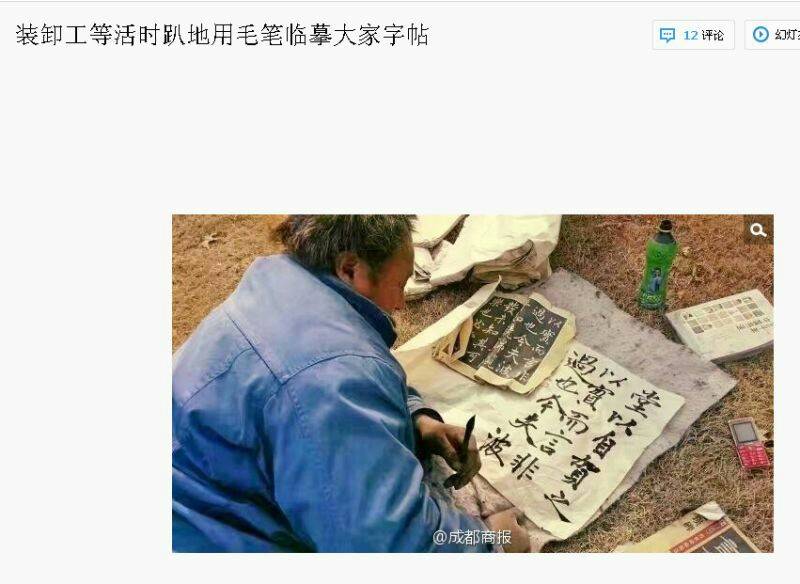 装卸工等活时趴地用毛笔临摹大家字帖
12 评论
幻灯
過也今夫波
堂以自賀之
以賀而言非
過也今夫波
@成都商报